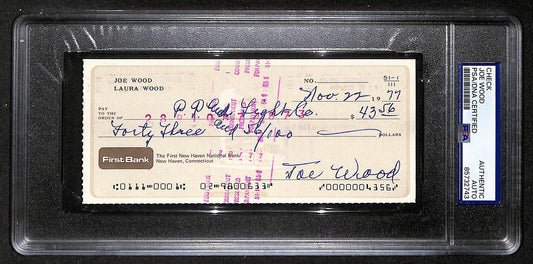 JOE WOOD
LAURA WOOD
NO.
51-1
111
Nov. 22 1977
PAY
TO THE
ORDER OF
Light Co. $ 43 56
Forty Three and 56/100 DOLLARS
First Bank
The First New Haven National Bank
New Haven, Connecticut
Joe Wood
⑆0111⑈0001⑆ 02⑈9800633⑈ ⑈0000004356⑈
CHECK
JOE WOOD
PSA/DNA CERTIFIED
PSA
AUTHENTIC
AUTO
85732743